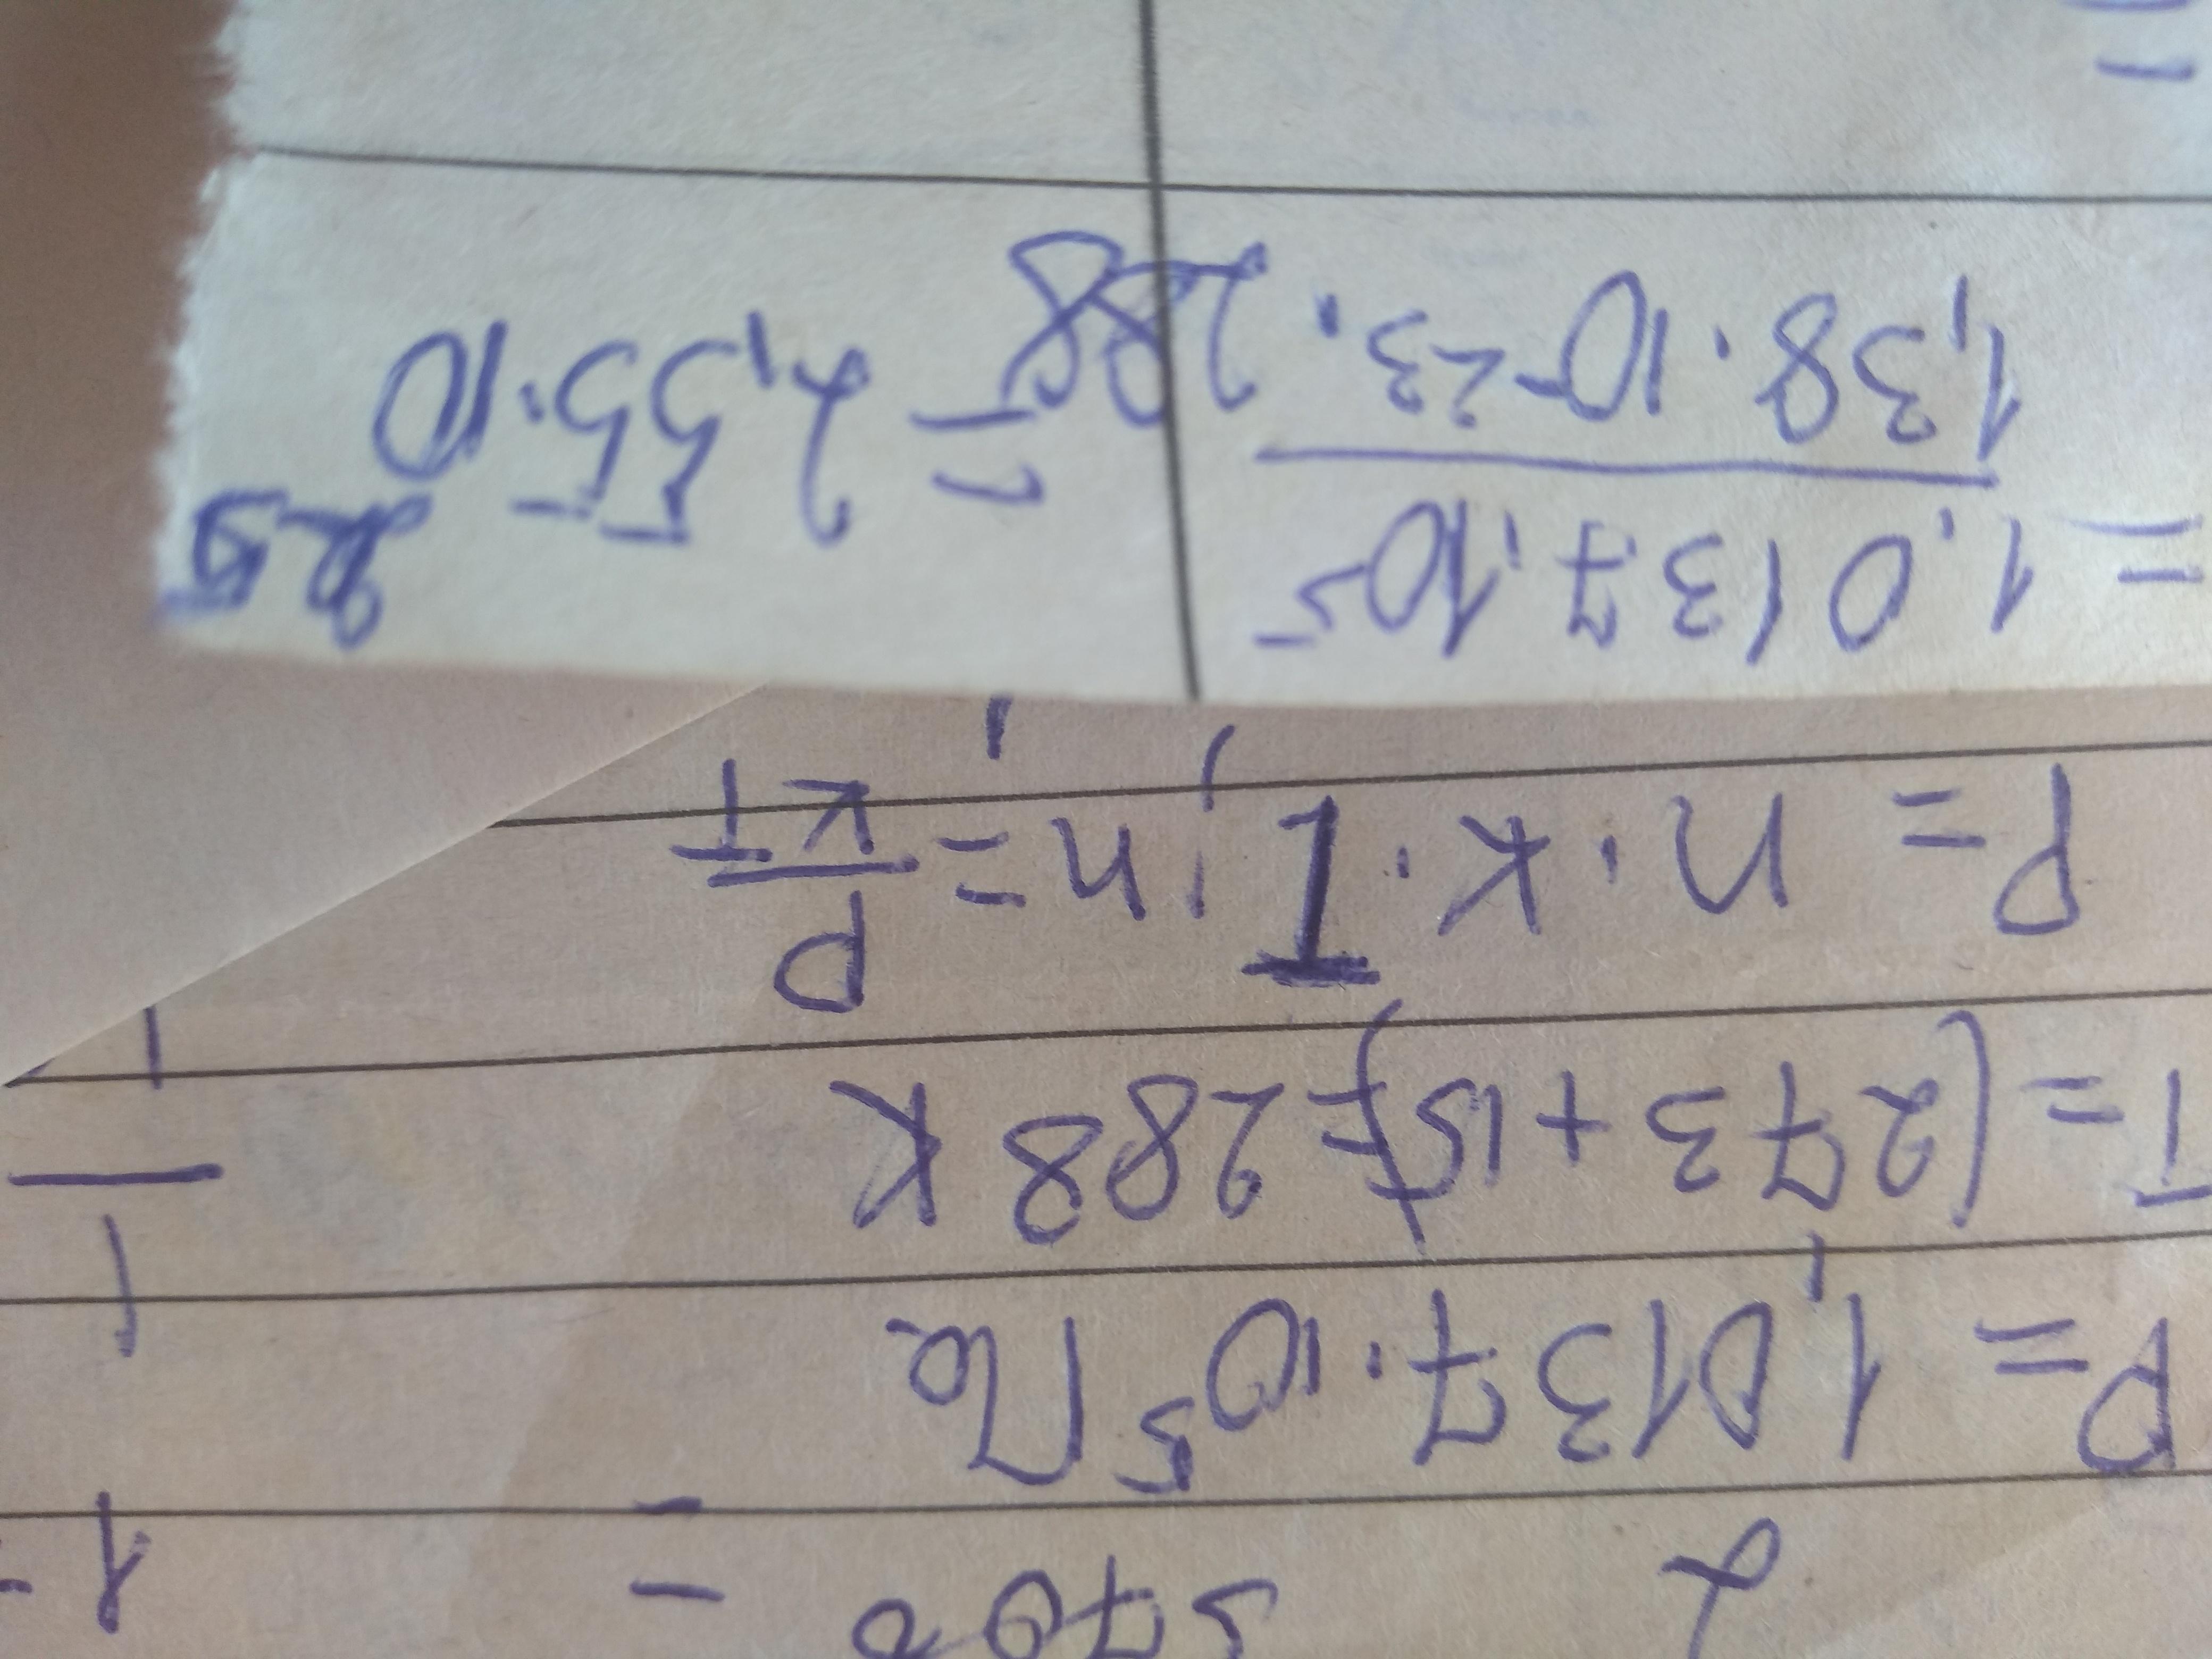 P = 1,0137·10⁵ Па
T = (273 + 15) = 288 K
P = n·K·T; n = P/KT
= 1,0137·10⁵ / 1,38·10⁻²³·288 = 2,55·10²⁵